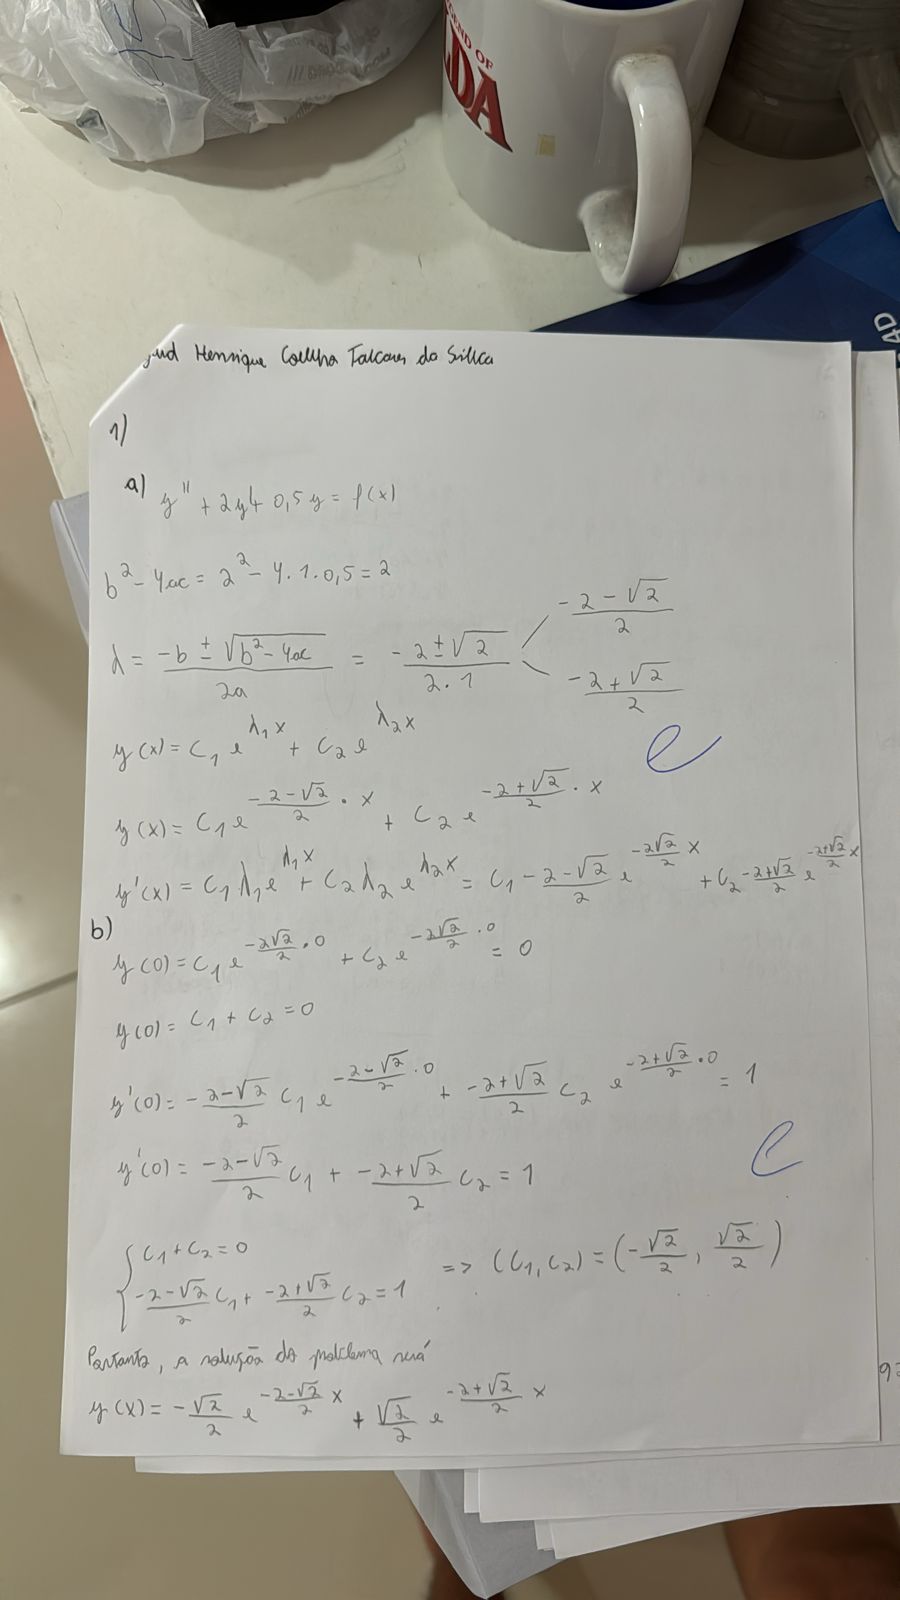 END OF
LDA
4D
Henrique Coelho Falcares da Silica
1)
a) y'' + 2y' + 0,5y = f(x)
b² - 4ac = 2² - 4.1.0,5 = 2
λ = (-b ± √(b² - 4ac))/2a = (-2 ± √2)/(2.1) < (-2 - √2)/2
(-2 + √2)/2
y(x) = C₁ e^(λ₁x) + C₂ e^(λ₂x)
y(x) = C₁ e^((-2-√2)/2 · x) + C₂ e^((-2+√2)/2 · x)
y'(x) = C₁ λ₁ e^(λ₁x) + C₂ λ₂ e^(λ₂x) = C₁ (-2-√2)/2 e^((-2√2)/2 x) + C₂ (-2+√2)/2 e^((-2+√2)/2 x)
b)
y(0) = C₁ e^((-2√2)/2 · 0) + C₂ e^((-2√2)/2 · 0) = 0
y(0) = C₁ + C₂ = 0
y'(0) = (-2-√2)/2 C₁ e^((-2-√2)/2 · 0) + (-2+√2)/2 C₂ e^((-2+√2)/2 · 0) = 1
y'(0) = (-2-√2)/2 C₁ + (-2+√2)/2 C₂ = 1
{ C₁ + C₂ = 0
(-2-√2)/2 C₁ + (-2+√2)/2 C₂ = 1 => (C₁, C₂) = (-√2/2, √2/2)
Portanto, a solução do problema será
y(x) = -√2/2 e^((-2-√2)/2 x) + √2/2 e^((-2+√2)/2 x)